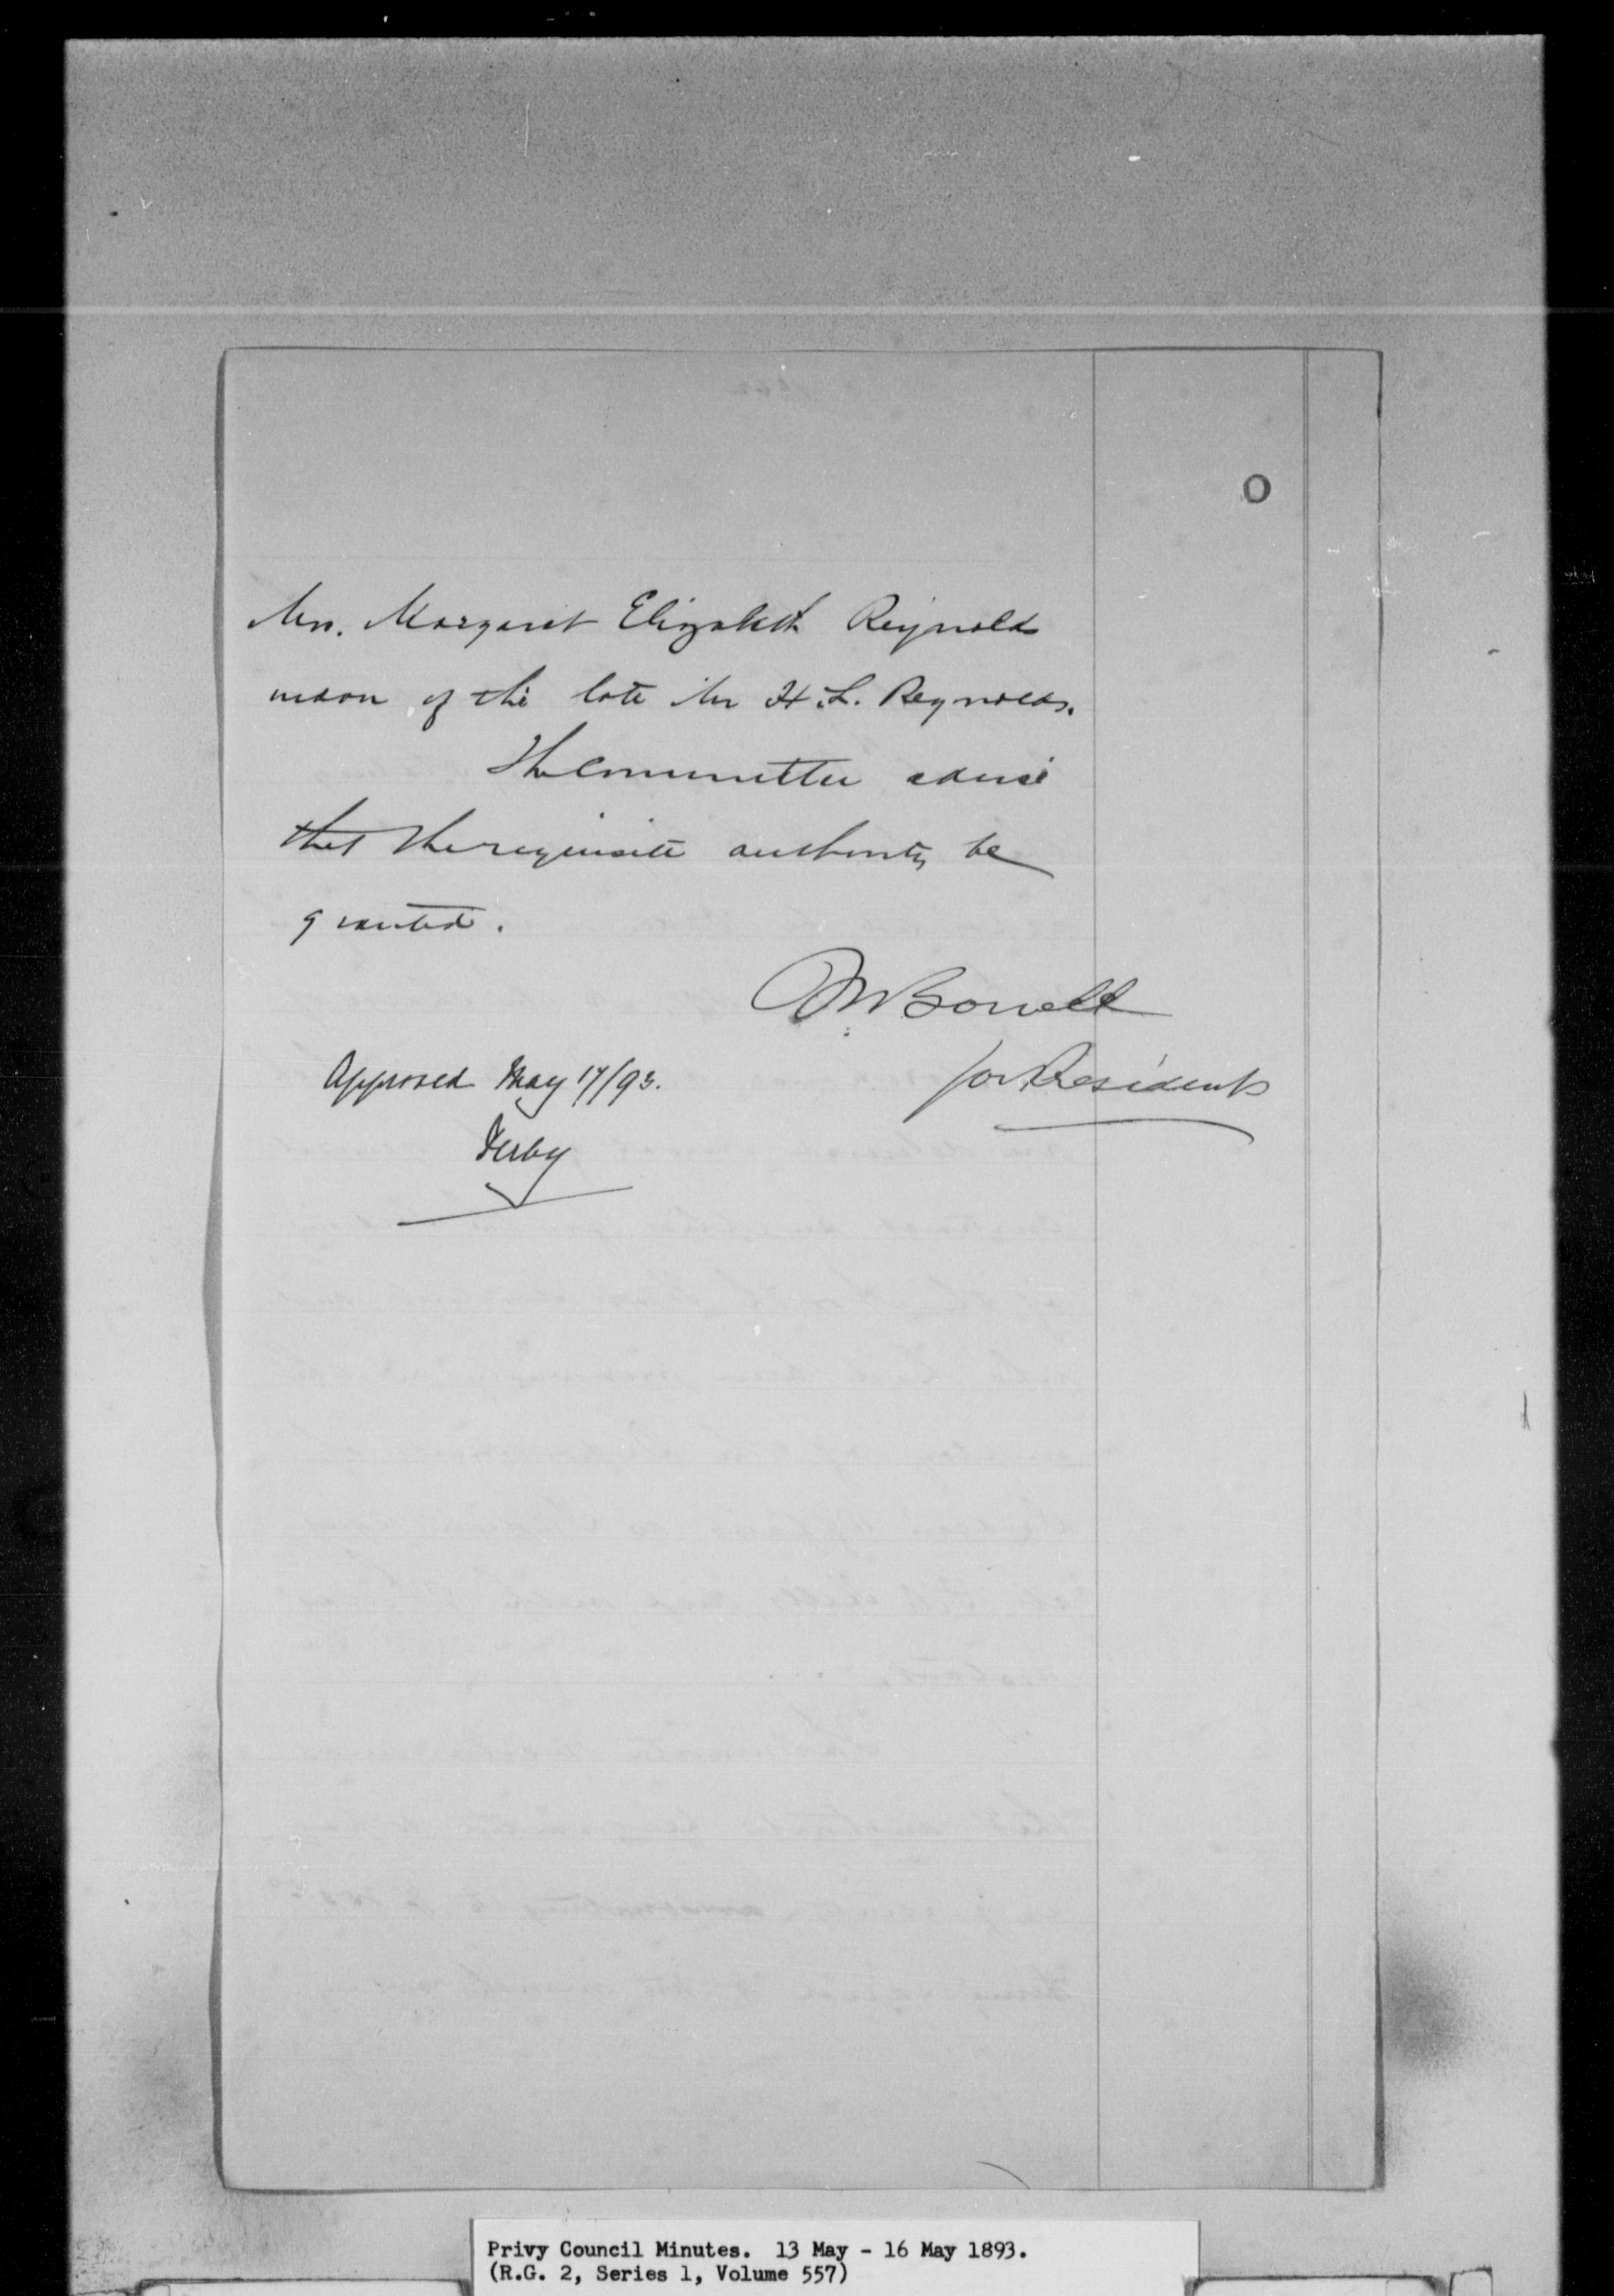 O
Mrs. Margaret Elizabeth Reynolds
widow of the late Mr H. L. Reynolds.
The Committee advise
that the requisite authority be
granted.
M Bowell
for President
Approved May 17/93.
Derby
Privy Council Minutes. 13 May - 16 May 1893.
(R.G. 2, Series 1, Volume 557)